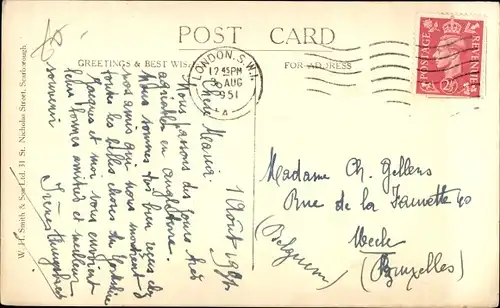 POST CARD
GREETINGS & BEST WIS
FOR ADDRESS
LONDON. S.W.1.
12 45 PM
AUG
1951
A
POSTAGE
REVENUE
2½D
W. H. Smith & Son Ltd. 31 St. Nicholas Street, Scarborough.
1 Août 1951
Chère Maria.
Nous passons des jours très
agréables en angleterre.
Nous sommes très bien reçus chez
nos amis qui nous montrent
toutes les belles choses du Yorkshire
Jacques et moi vous envoient
leurs bonnes amitiés et meilleur
souvenir
Madame Ch. Gellens
Rue de la 40
(Belgium)
(Bruxelles)